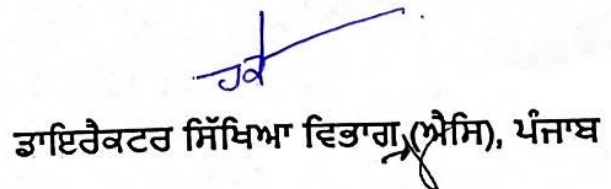 ਹਕ
ਡਾਇਰੈਕਟਰ ਸਿੱਖਿਆ ਵਿਭਾਗ (ਐਸਿ), ਪੰਜਾਬ